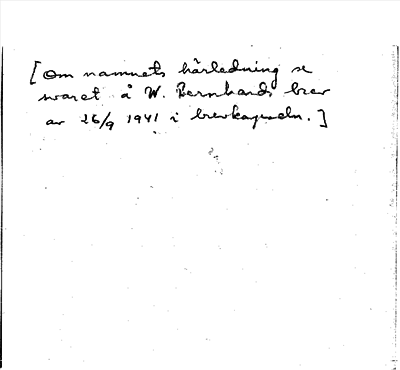 [Om namnets härledning se
svaret å W. Bernhards brev
av 26/9 1941 i brevkapseln.]